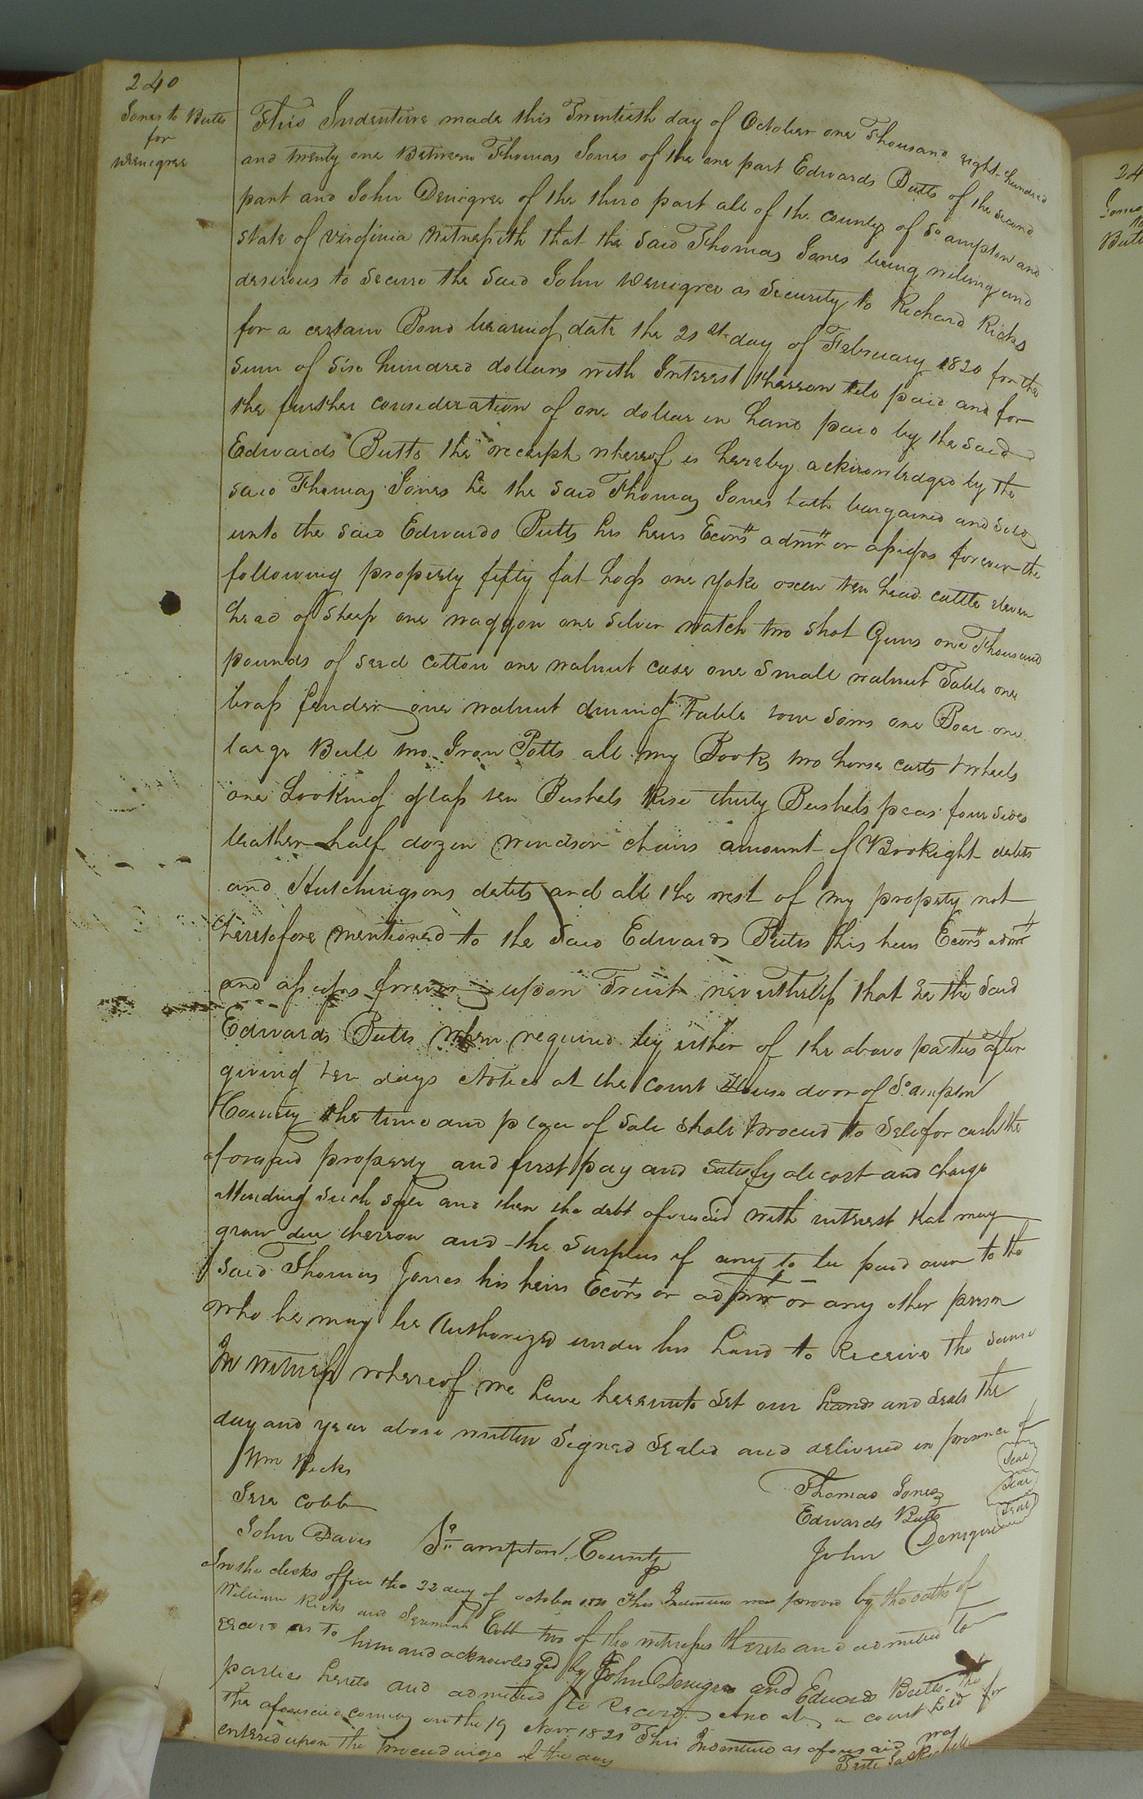 240
Jones to Butts
for
Denegree
This Indenture made this Twentieth day of October one Thousand eight hundred
and twenty one Between Thomas Jones of the one part Edwards Butts of the second
part and John Denegree of the third part all of the county of So ampton and
state of virginia Witnesseth that the said Thomas Jones being willing and
desirous to secure the said John Denegree as security to Richard Ricks
for a certain Bond bearing date the 21st day of February 1820 for the
sum of six hundred dollars with Interest thereon till paid and for
the further consideration of one dollar in hand paid by the said
Edwards Butts the receipt whereof is hereby acknowledged by the
said Thomas Jones he the said Thomas Jones hath bargained and sold
unto the said Edwards Butts his heirs Ecors admr or assigns forever the
following property fifty fat hogs one yoke oxen ten head cattle eleven
head of sheep one waggon one silver watch two shot Guns one Thousand
pounds of seed cotton one walnut case one small walnut Table one
brass fender one walnut dining Table four sows one Boar one
large Bull two Iron Potts all my Books two horse carts & wheels
one Looking glass ten Bushels Rise thirty Bushels peas four sides
leather half dozen windsor chairs amount of Bookight debts
and Hutchingsons debts and all the rest of my property not
heretofore mentioned to the said Edwards Butts his heirs Ecors admr
and assigns forever upon Trust nevertheless that he the said
Edwards Butts when required by either of the above parties after
giving ten days Notice at the court House door of So ampton
County the time and place of sale shall proceed to sell for cash the
aforesaid property and first pay and satisfy all cost and charge
attending such sale and then the debt aforesaid with interest that may
grow due thereon and the surplus if any to be paid over to the
said Thomas Jones his heirs Ecors or admr or any other person
who he may be Authorized under his hand to Receive the same
In witness whereof we have hereunto set our hands and seals the
day and year above written Signed Sealed and delivered in presence of
Wm Ricks
Jere Cobb
John Davis
Thomas Jones Seal
Edwards Butts Seal
John Denegree Seal
So ampton County
In the clerks office the 22 day of october 1821 This Indenture was proved by the oaths of
William Ricks and Jeremiah Cobb two of the witnesses thereto and admitted to
record as to him and acknowledged by John Denegree and Edwards Butts the
parties hereto and admitted to record And at a court held for
the aforesaid county on the 19 Novr 1821 This Indenture as aforesaid was
entered upon the proceedings of the day
Teste
24
Jones
to
Butts